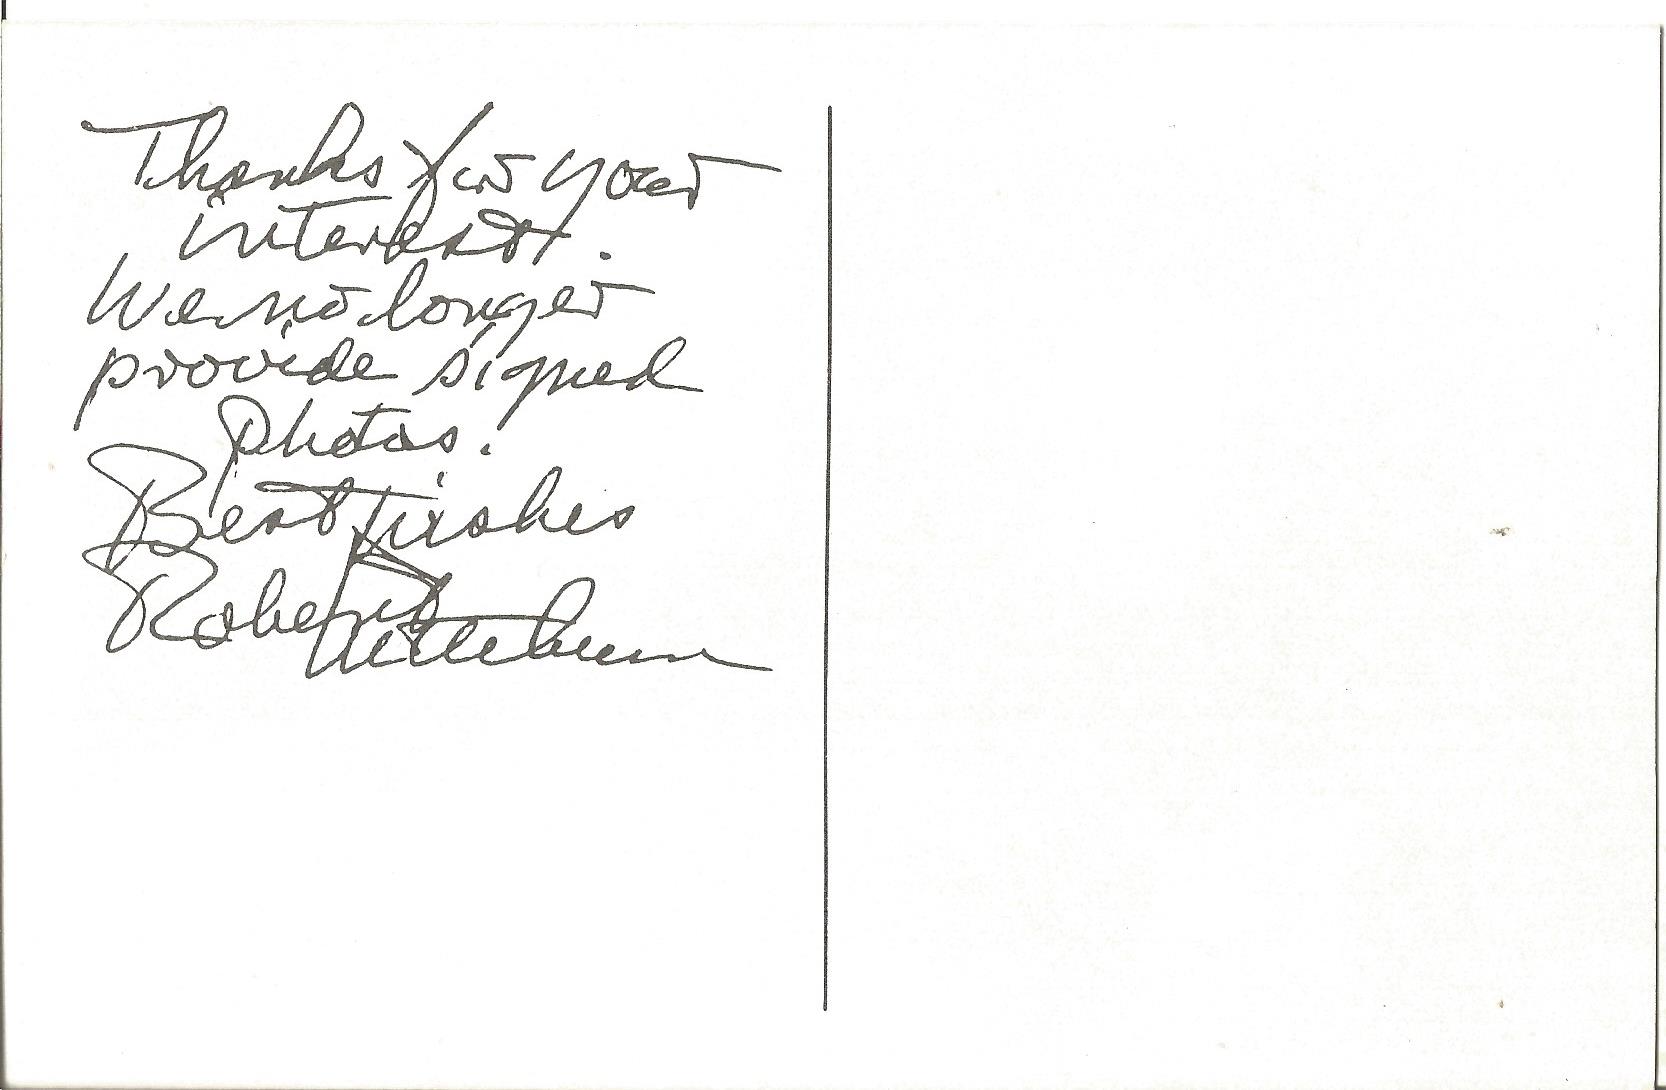 Thanks for your
interest.
We no longer
provide signed
photos.
Best Wishes
Robert